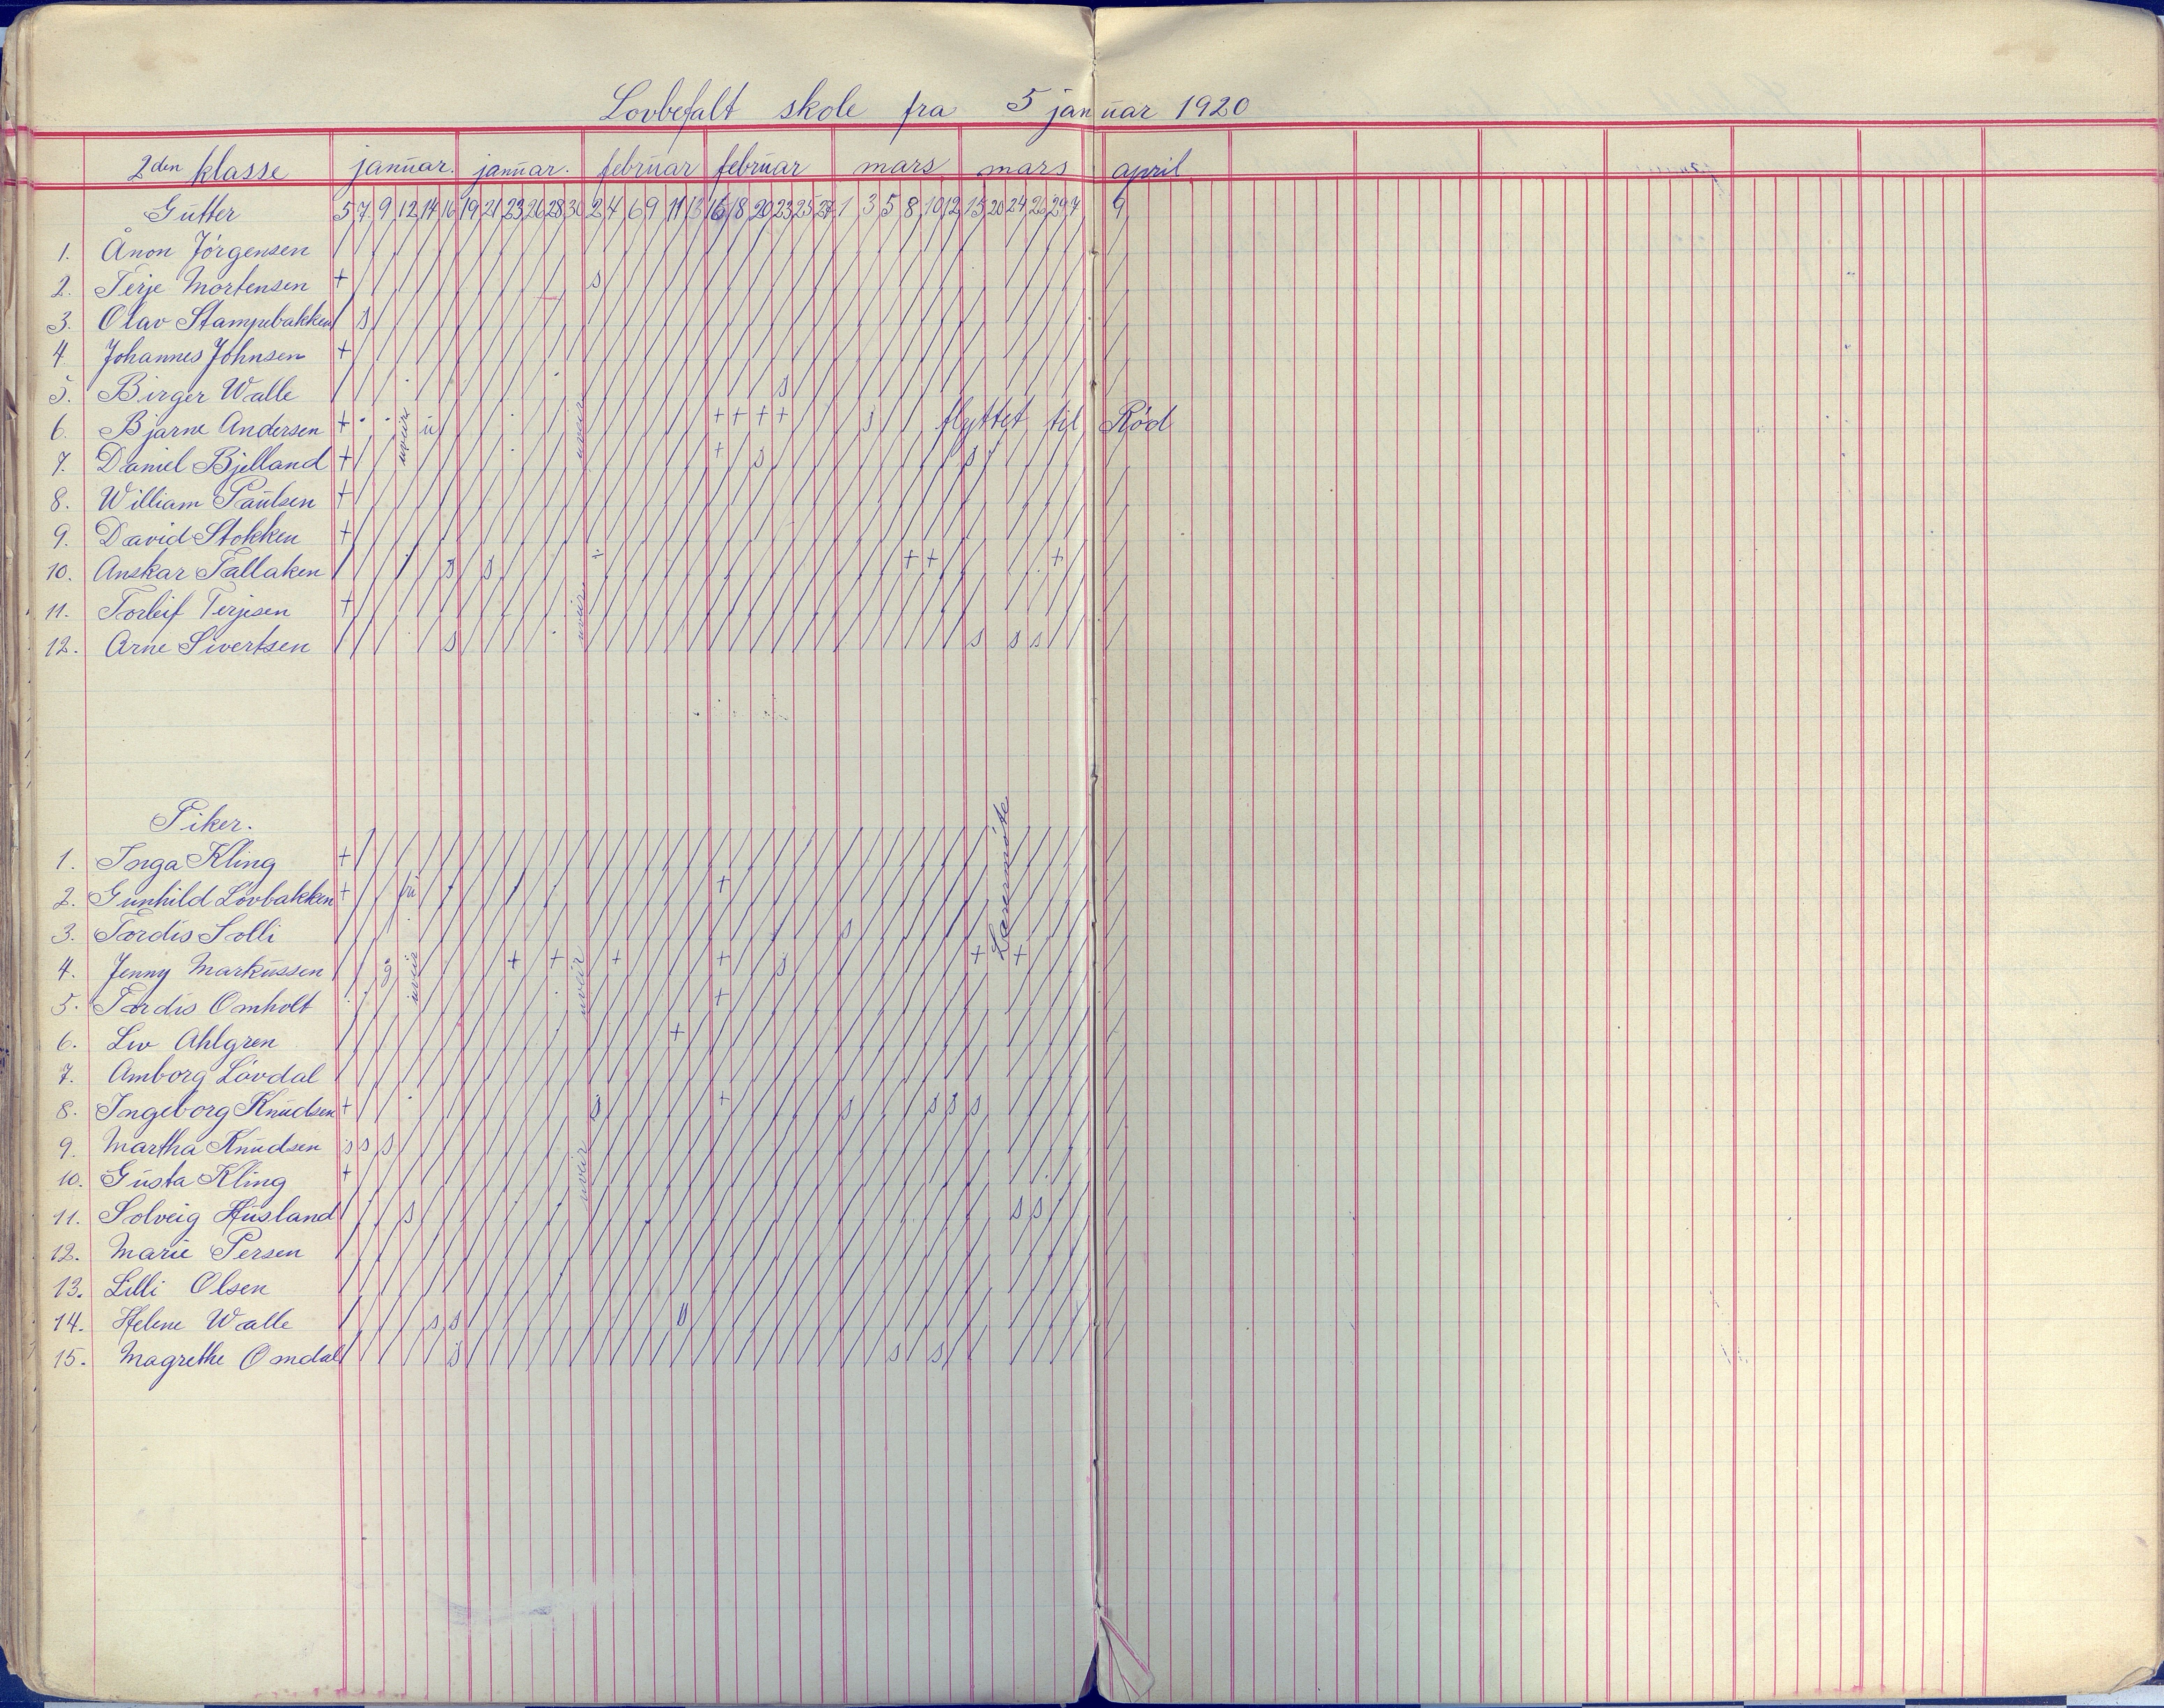 Lovbefalt skole fra 5 januar 1920
2den klasse januar. januar. februar februar mars mars april
Gutter 5 7 9 12 14 16 19 21 23 26 28 30 2 4 6 9 11 13 16 18 20 23 25 27 1 3 5 8 10 12 15 20 24 26 29 7 9
1. Ånon Jörgensen
2. Terje Mortensen + s
3. Olav Stampebakken s
4. Johannes Johnsen +
5. Birger Walle s
6. Bjarne Andersen + + + + + s flyttet til Rød
7. Daniel Bjelland + + s s
8. William Paulsen +
9. David Stokken +
10. Anskar Tallaksen s s + + +
11. Torleif Terjesen +
12. Arne Sivertsen s s s s
uveir
uveir
uveir
Piker.
1. Inga Kling +
2. Gunhild Lövbakken + fri +
3. Tordis Solli s
4. Jenny Markussen g + + + + s + +
5. Tordis Omholt +
6. Liv Ahlgren +
7. Amborg Lövdal
8. Ingeborg Knudsen + s + s s s s
9. Martha Knudsen s s s
10. Gusta Kling +
11. Solveig Husland s s s
12. Marie Persen
13. Lilli Olsen
14. Helene Walle s s
15. Magrethe Omdal s s s
uveir
uveir
uveir
Lærermöte